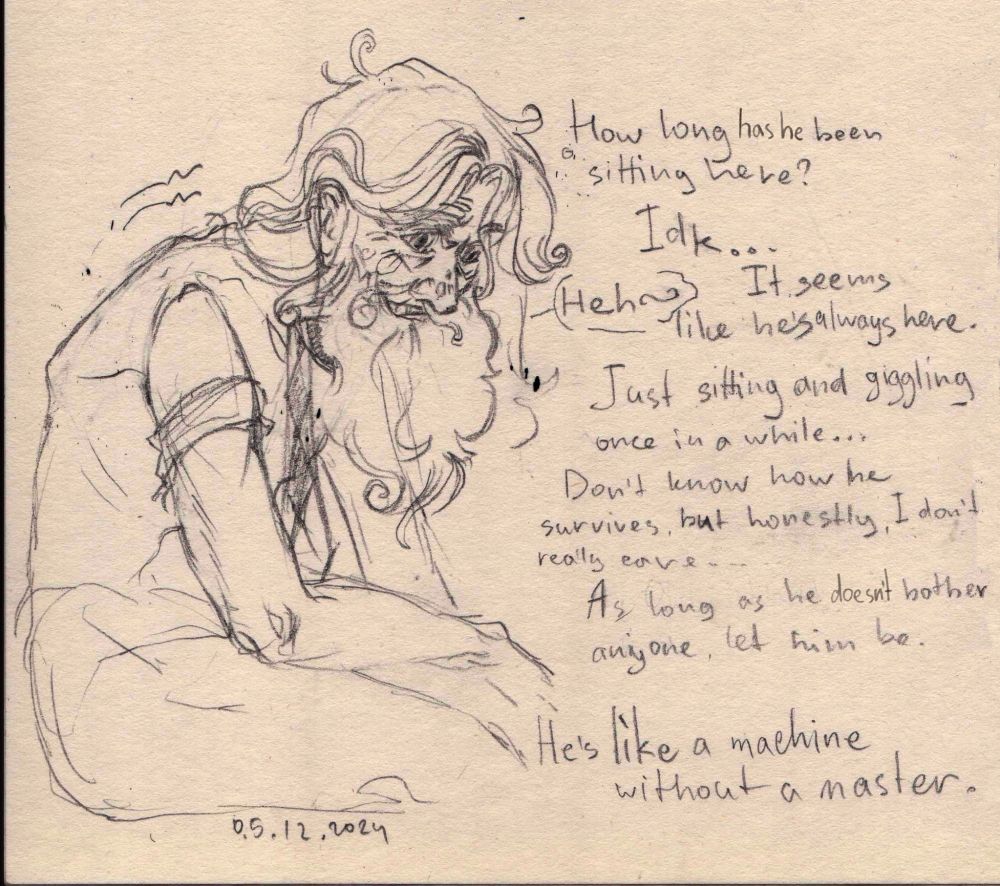 How long has he been
sitting here?
Idk...
(Heh~)
It seems
like he's always here.
Just sitting and giggling
once in a while...
Don't know how he
survives, but honestly, I don't
really care...
As long as he doesn't bother
anyone, let him be.
He's like a machine
without a master.
05.12.2024